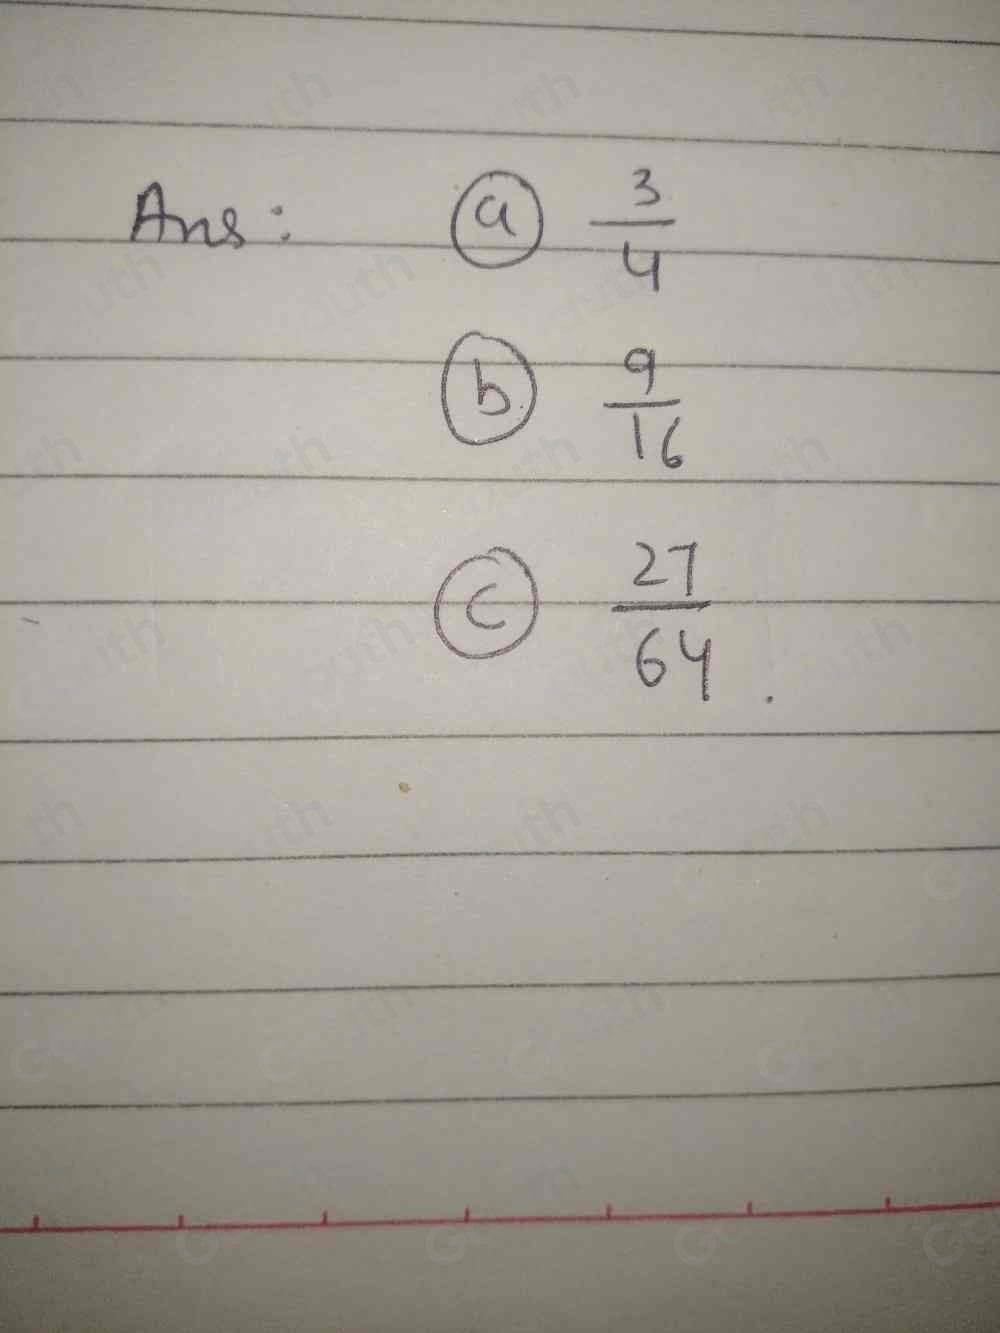 Ans: (a) 3/4
(b) 9/16
(c) 27/64.